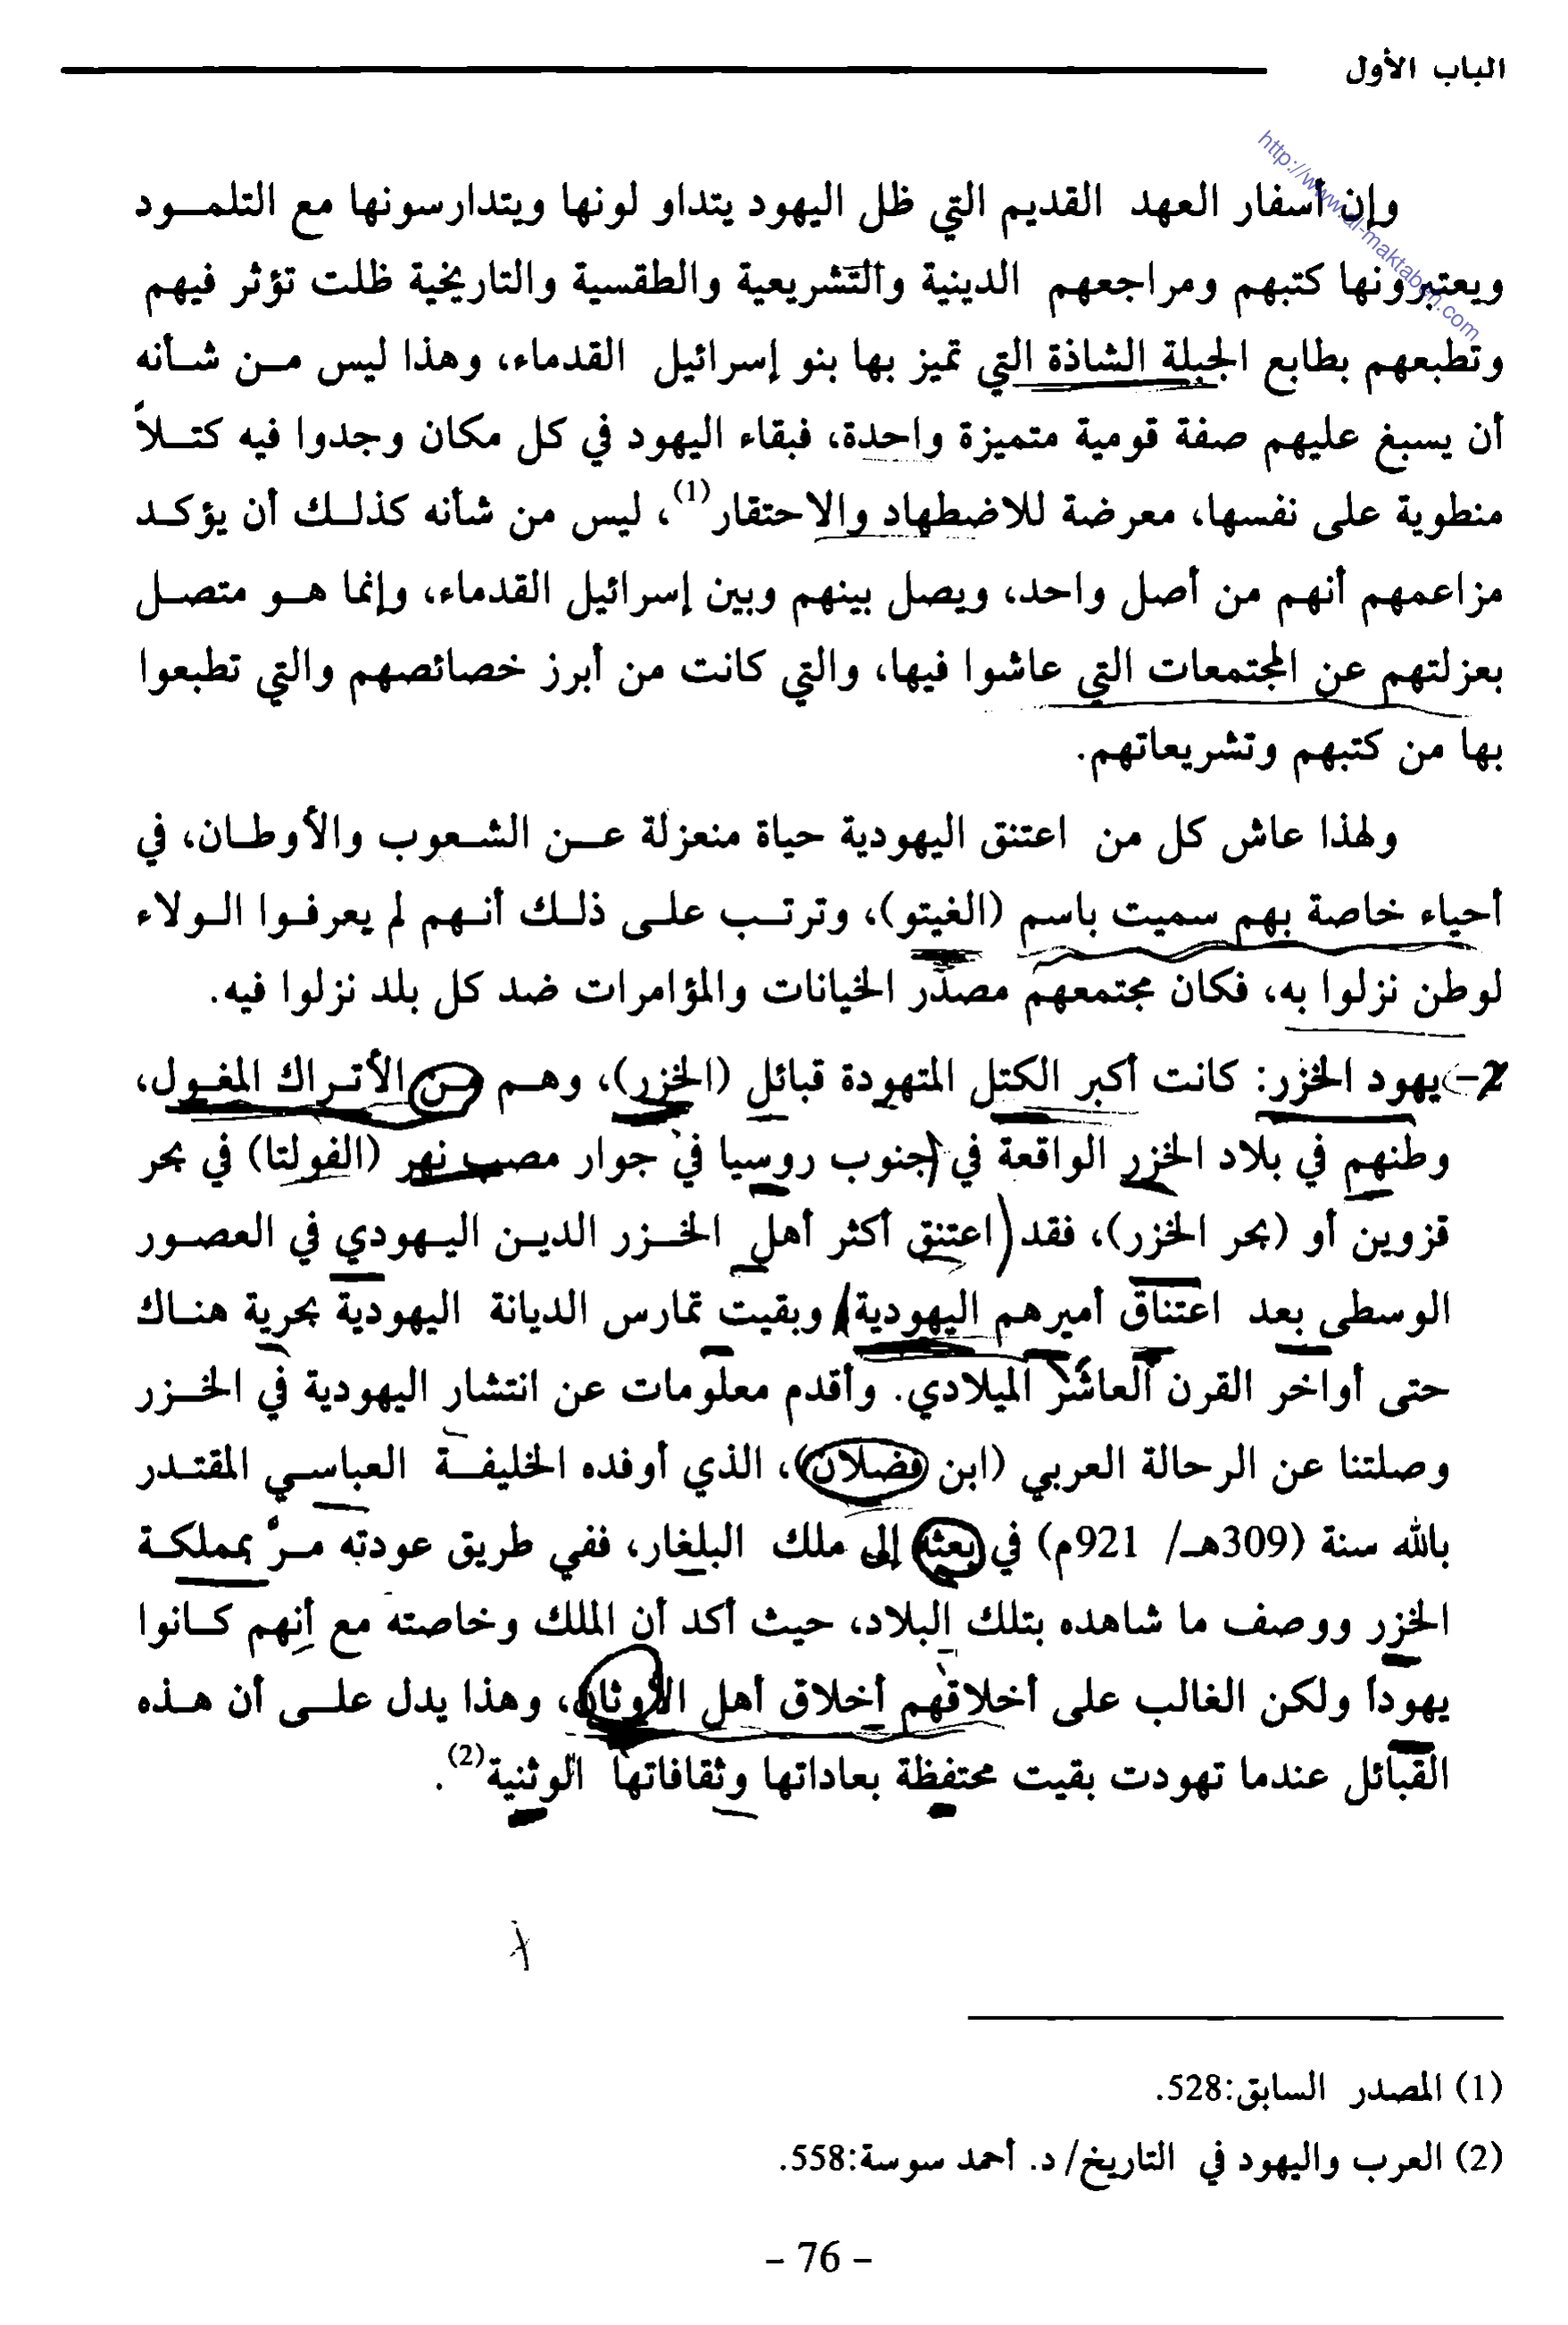 الباب الأول
http://www.al-maktabeh.com
وإن أسفار العهد القديم التي ظل اليهود يتداو لونها ويتدارسونها مع التلمــود
ويعتبرونها كتبهم ومراجعهم الدينية والتشريعية والطقسية والتاريخية ظلت تؤثر فيهم
وتطبعهم بطابع الجبلة الشاذة التي تميز بها بنو إسرائيل القدماء، وهذا ليس مـن شـأنه
أن يسبغ عليهم صفة قومية متميزة واحدة، فبقاء اليهود في كل مكان وجدوا فيه كتـلاً
منطوية على نفسها، معرضة للاضطهاد والاحتقار(1)، ليس من شأنه كذلـك أن يؤكـد
مزاعمهم أنهم من أصل واحد، ويصل بينهم وبين إسرائيل القدماء، وإنما هـو متصـل
بعزلتهم عن المجتمعات التي عاشوا فيها، والتي كانت من أبرز خصائصهم والتي تطبعوا
بها من كتبهم وتشريعاتهم.
ولهذا عاش كل من اعتنق اليهودية حياة منعزلة عـن الشـعوب والأوطـان، في
أحياء خاصة بهم سميت باسم (الغيتو)، وترتـب علـى ذلـك أنـهم لم يعرفـوا الـولاء
لوطن نزلوا به، فكان مجتمعهم مصدر الخيانات والمؤامرات ضد كل بلد نزلوا فيه.
2- يهود الخزر: كانت أكبر الكتل المتهودة قبائل (الخزر)، وهـم مـن الأتـراك المغـول،
وطنهم في بلاد الخزر الواقعة في جنوب روسيا في جوار مصب نهر (الفولتا) في بحر
قزوين أو (بحر الخزر)، فقد اعتنق أكثر أهل الخـزر الديـن اليـهودي في العصـور
الوسطى بعد اعتناق أميرهم اليهودية، وبقيت تمارس الديانة اليهودية بحرية هنـاك
حتى أواخر القرن العاشر الميلادي. وأقدم معلومات عن انتشار اليهودية في الخـزر
وصلتنا عن الرحالة العربي (ابن فضلان)، الذي أوفده الخليفـة العباسـي المقتـدر
بالله سنة (309هـ/ 921م) في بعثه إلى ملك البلغار، ففي طريق عودته مـرَّ بمملكـة
الخزر ووصف ما شاهده بتلك البلاد، حيث أكد أن الملك وخاصته مع أنهم كـانوا
يهوداً ولكن الغالب على أخلاقهم أخلاق أهل الأوثان، وهذا يدل علـى أن هـذه
القبائل عندما تهودت بقيت محتفظة بعاداتها وثقافاتها الوثنية(2).
(1) المصدر السابق:528.
(2) العرب واليهود في التاريخ/ د. أحمد سوسة:558.
- 76 -